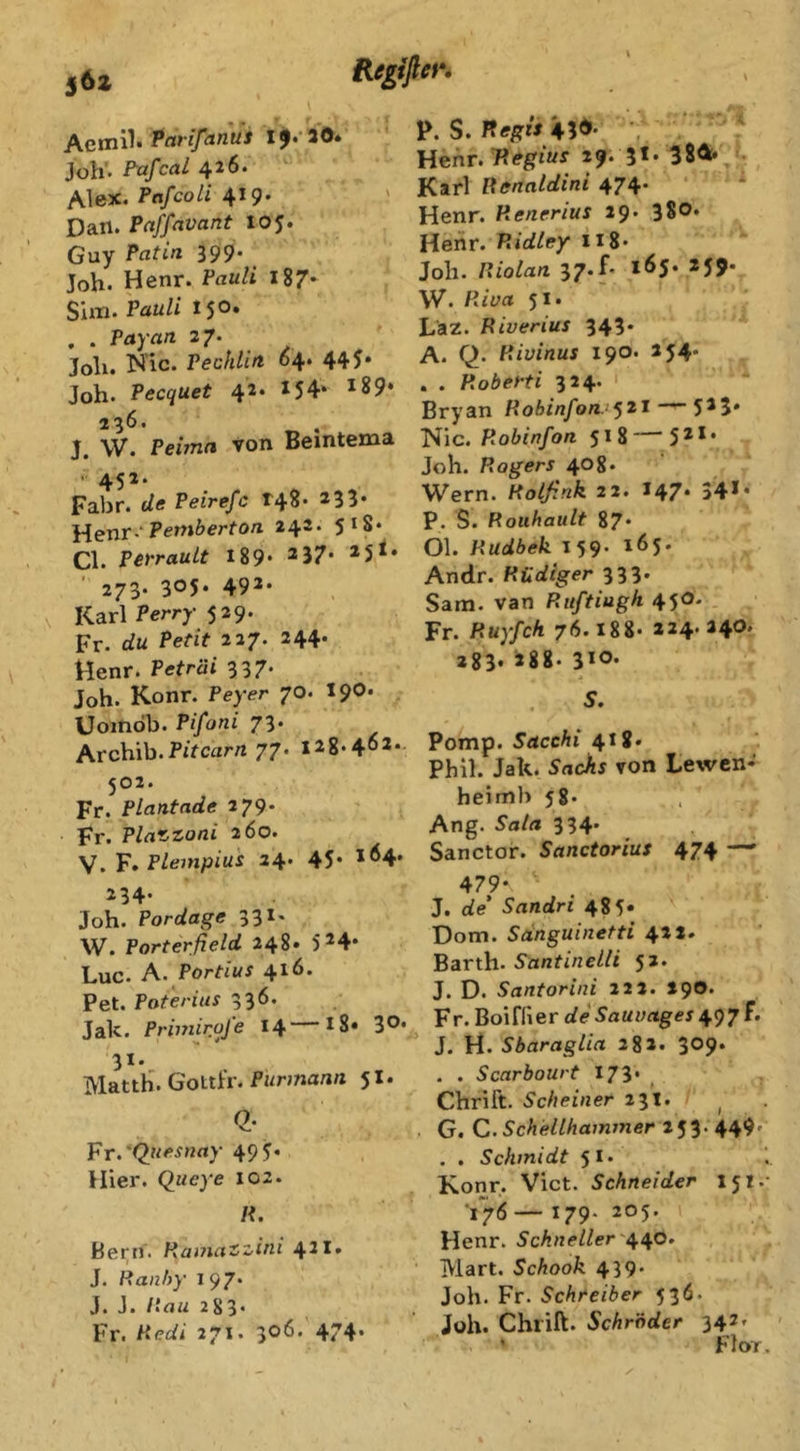 562
Regiſter.
Aemil. Pariſanus 19. 20.
Joh. Paſcal 426.
Alex. Paſcoli 419.
Dan. Paſſavant 105.
Guy Patin 399.
Joh. Henr. Pauli 187.
Sim. Pauli 150.
. . Payan 27.
Joh. Nic. Pechlin 64. 445.
Joh. Pecquet 42. 154. 189.
236.
J. W. Peima von Beintema
452.
Fabr. de Peireſc 148. 233.
Henr. Pemberton 242. 518.
Cl. Perrault 189. 237. 251.
273. 305. 492.
Karl Perry 529.
Fr. du Petit 227. 244.
Henr. Peträi 337.
Joh. Konr. Peyer 70. 190.
Uomob. Piſoni 73.
Archib. Pitcarn 77. 128. 462.
502.
Fr. Plantade 279.
Fr. Plazzoni 260.
V. F. Plempius 24. 45. 164.
234.
Joh. Pordage 331.
W. Porterfield 248. 524.
Luc. A. Portius 416.
Pet. Poterius 336.
Jak. Primiroſe 14—18. 30.
31.
Matth. Gottfr. Purmann 51.
Q.
Fr. Quesnay 495.
Hier. Queye 102.
R.
Bern. Ramazzini 421.
J. Ranby 197.
J. J. Rau 283.
Fr. Redi 271. 306. 474.
P. S. Regis 430.
Henr. Regius 29. 31. 380.
Karl Renaldini 474.
Henr. Renerius 29. 380.
Henr. Ridley 118.
Joh. Riolan 37. f. 165. 259.
W. Riva 51.
Laz. Riverius 343.
A. Q. Rivinus 190. 254.
. . Roberti 324.
Bryan Robinſon 521—523.
Nic. Robinſon 518—521.
Joh. Rogers 408.
Wern. Rolfink 22. 147. 341.
P. S. Rouhault 87.
Ol. Rudbek 159. 165.
Andr. Rüdiger 333.
Sam. van Ruſtingh 450.
Fr. Ruyſch 76. 188. 224. 240.
283. 288. 310.
S.
Pomp. Sacchi 418.
Phil. Jak. Sachs von Lewen-
heimb 58.
Ang. Sala 334.
Sanctor. Sanctorius 474—
479.
J. de' Sandri 485.
Dom. Sanguinetti 422.
Barth. Santinelli 52.
J. D. Santorini 222. 290.
Fr. Boiſſier de Sauvages 497 f.
J. H. Sbaraglia 282. 309.
. . Scarbourt 173.
Chriſt. Scheiner 231.
G. C. Schellhammer 253. 449.
. . Schmidt 51.
Konr. Vict. Schneider 151.
176—179. 205.
Henr. Schneller 440.
Mart. Schook 439.
Joh. Fr. Schreiber 536.
Joh. Chriſt. Schröder 342.
Flor.